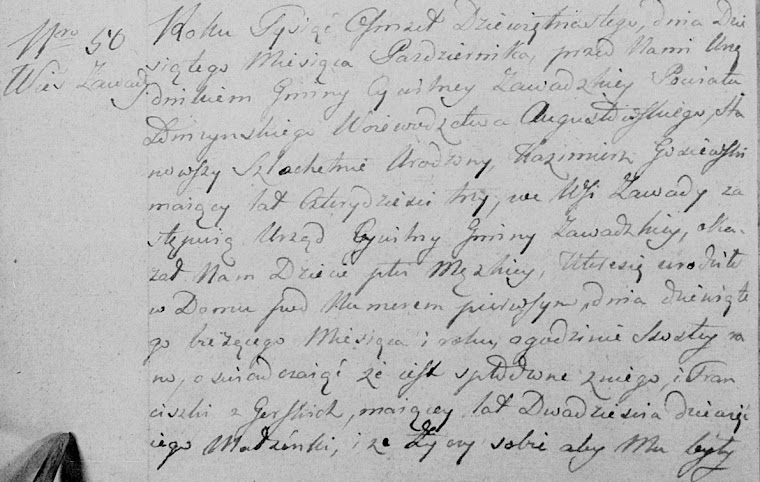 Nro 50
Wieś Zawady
Roku Tysiąć Ośmset Dziewiętnastego, dnia Dzie
siątego Miesiąca Pazdziernika, przed Nami Urzę
dnikiem Gminy Cywilney Zawadzkiey Powiatu
Łomzynskiego Woiewodztwa Augustowskiego, Sta
nowszy Szlachetnie Urodzony, Kazimierz Gosiewski
maiący lat Czterydziesci trzy, we Wsi Zawady za
stępuią Urząd Cywilny Gminy Zawadzkiey, oka-
zał Nam Dziecie płci Męzkiey, ktore się urodziło
w Domu pod Numerem pierwszym, dnia dziewięte
go bieżącego Miesiąca i roku, o godzinie Szostey ra
no, oswiadczaiąć że iest spłodzone z niego, i Fran
ciszki z Gorskich, maiącey lat Dwadziescia dziewięć
iego Małżonki, i że życzy sobie aby Mu były